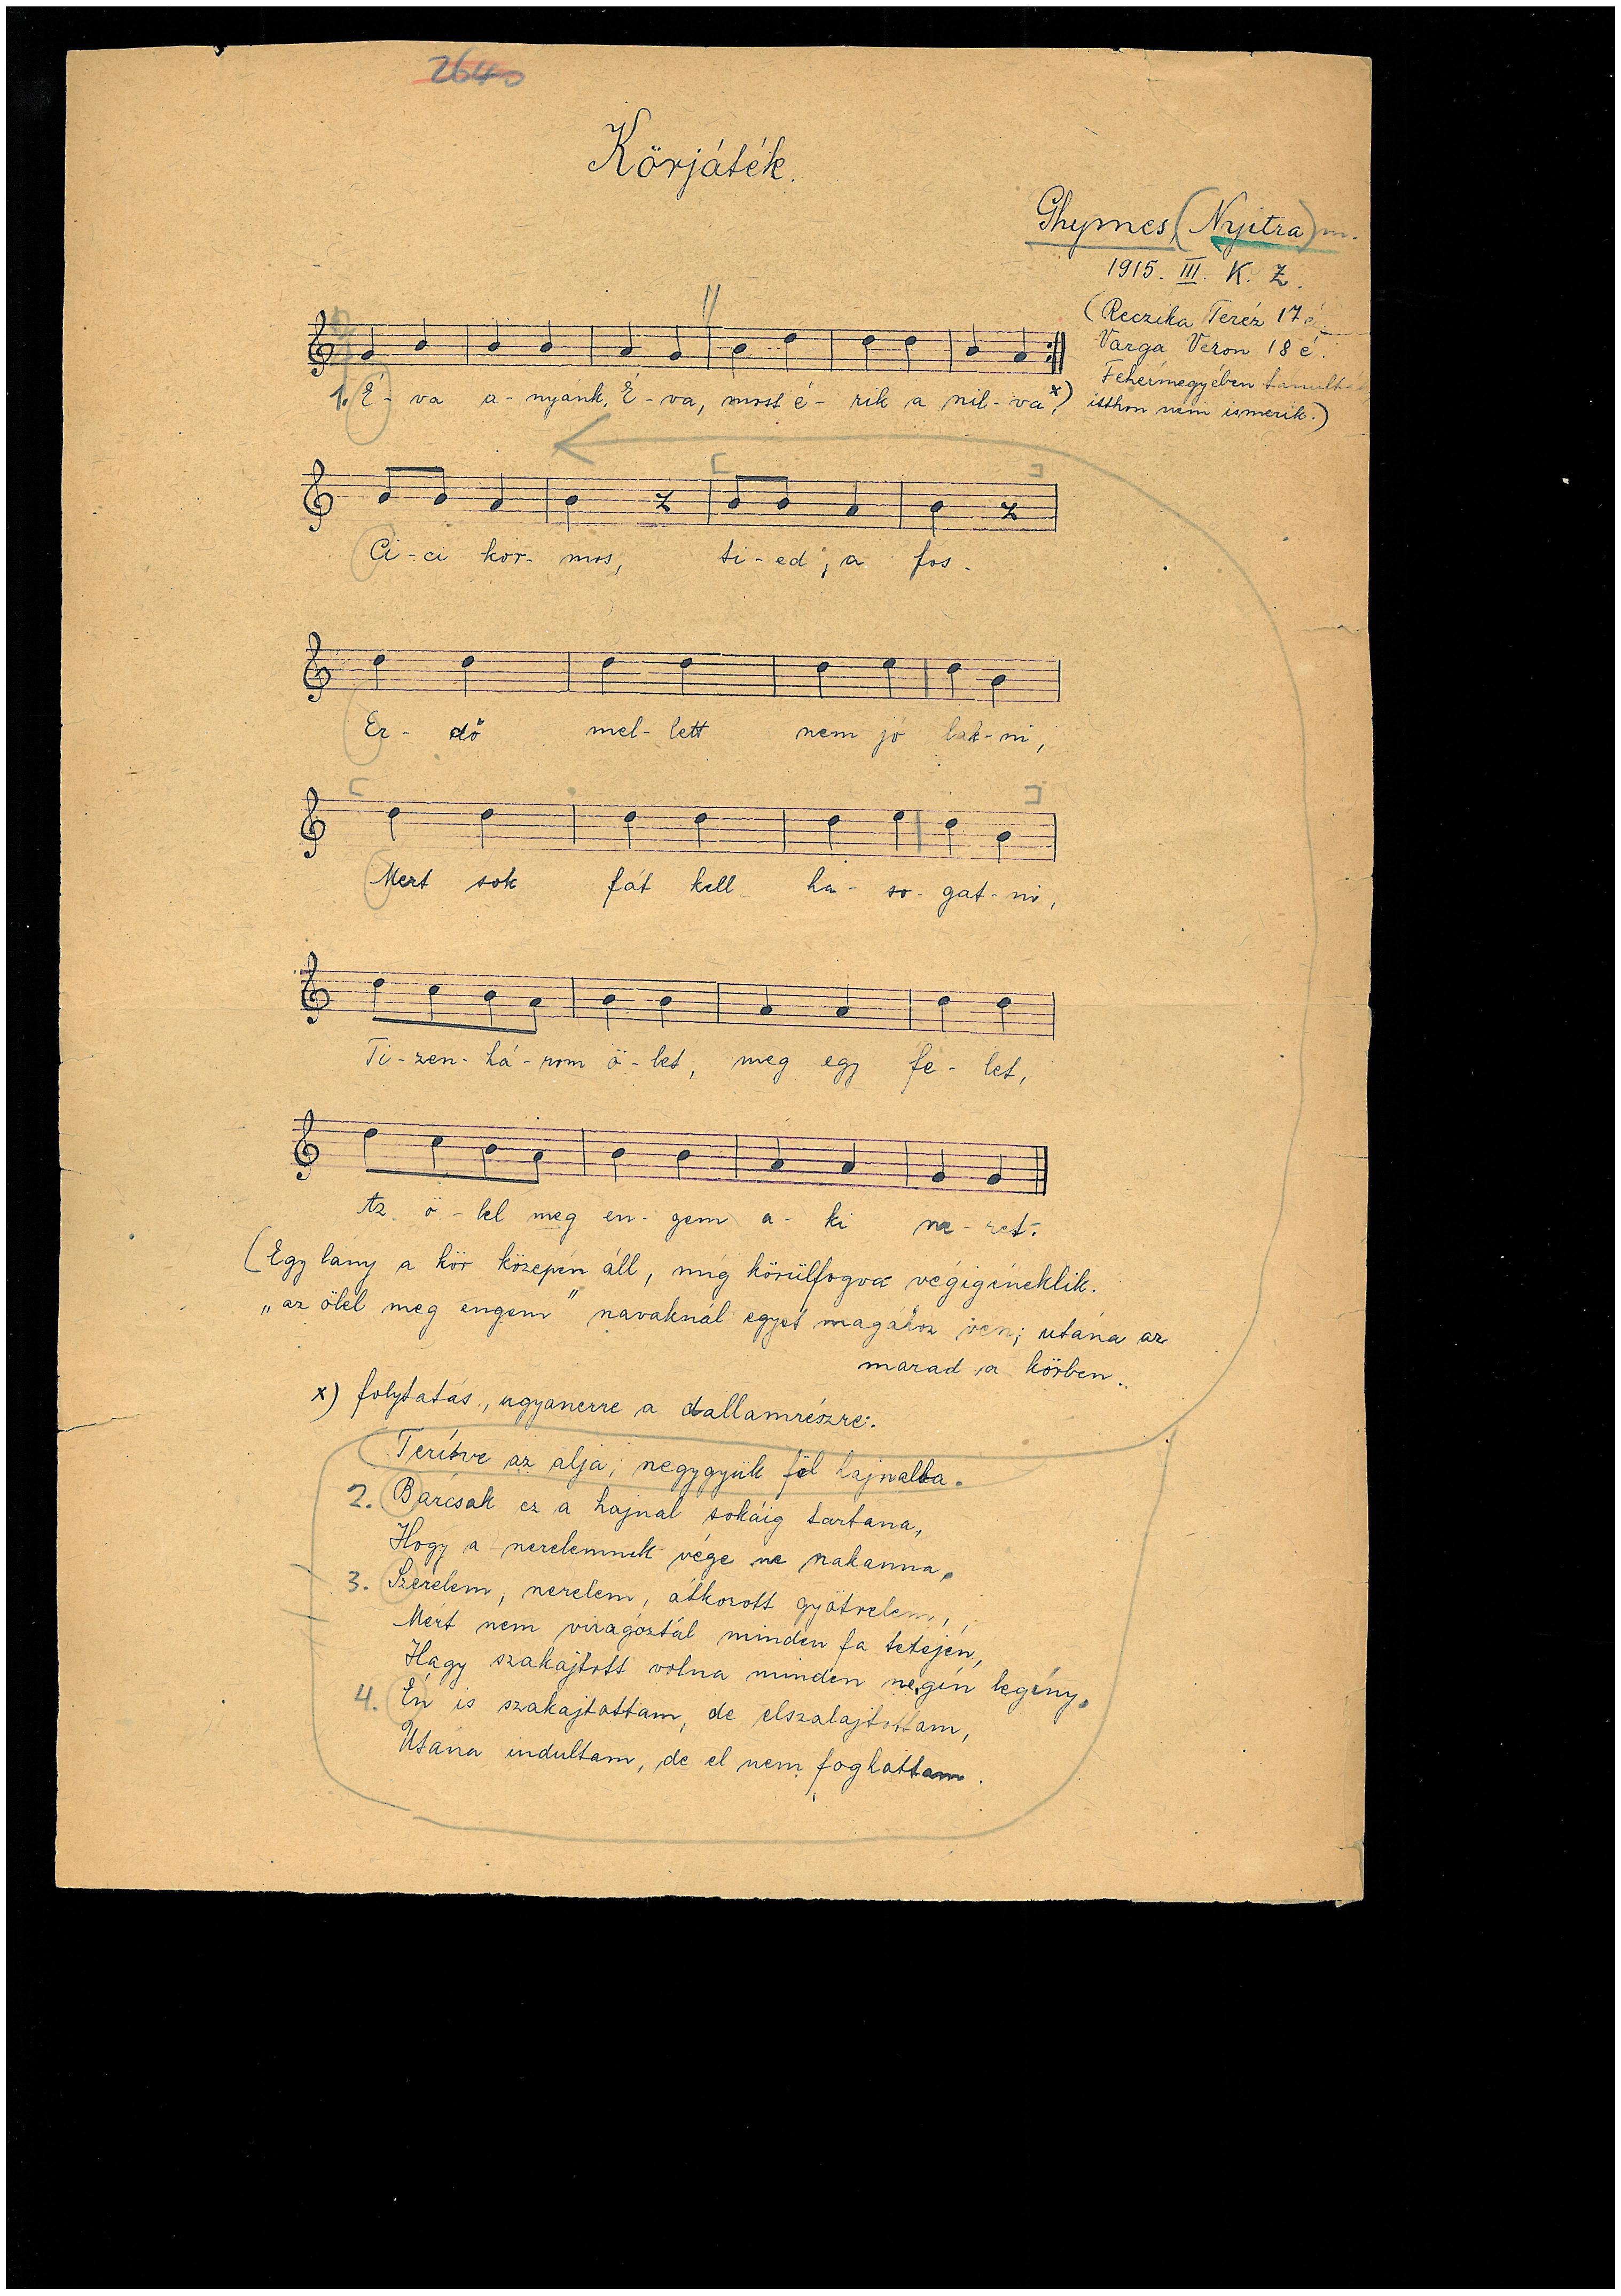 2640
Körjáték.
Ghymes (Nyitra) m.
1915. III. K. Z.
(Reczika Teréz 17 é.
Varga Veron 18 é.
Fehérmegyében tanulták
itthon nem ismerik.)
1. É - va a - nyánk, É - va, most é - rik a szil - va, x)
Ci - ci kor - mos, ti - ed a fos.
Er - dő mel - lett nem jó lak - ni,
Mert sok fát kell ha - so - gat - ni,
Ti - zen - há - rom ö - let, meg egy fe - let,
Az ö - lel meg en - gem a - ki sze - ret.
(Egy lány a kör közepén áll, míg körülfogva végigéneklik.
„az ölel meg engem" szavaknál egyet magához vesz; utána az
marad a körben.
x) folytatás, ugyanerre a dallamrészre:
Terítve az alja, szeggyük föl hajnalba.
2. Bárcsak ez a hajnal sokáig tartana,
Hogy a szerelemnek vége ne szakanna.
3. Szerelem, szerelem, átkozott gyötrelem,
Mért nem virágoztál minden fa tetején,
Hagy szakajtott volna minden szegín legíny.
4. Én is szakajtottam, de elszalajtottam,
Utána indultam, de el nem foghattam.